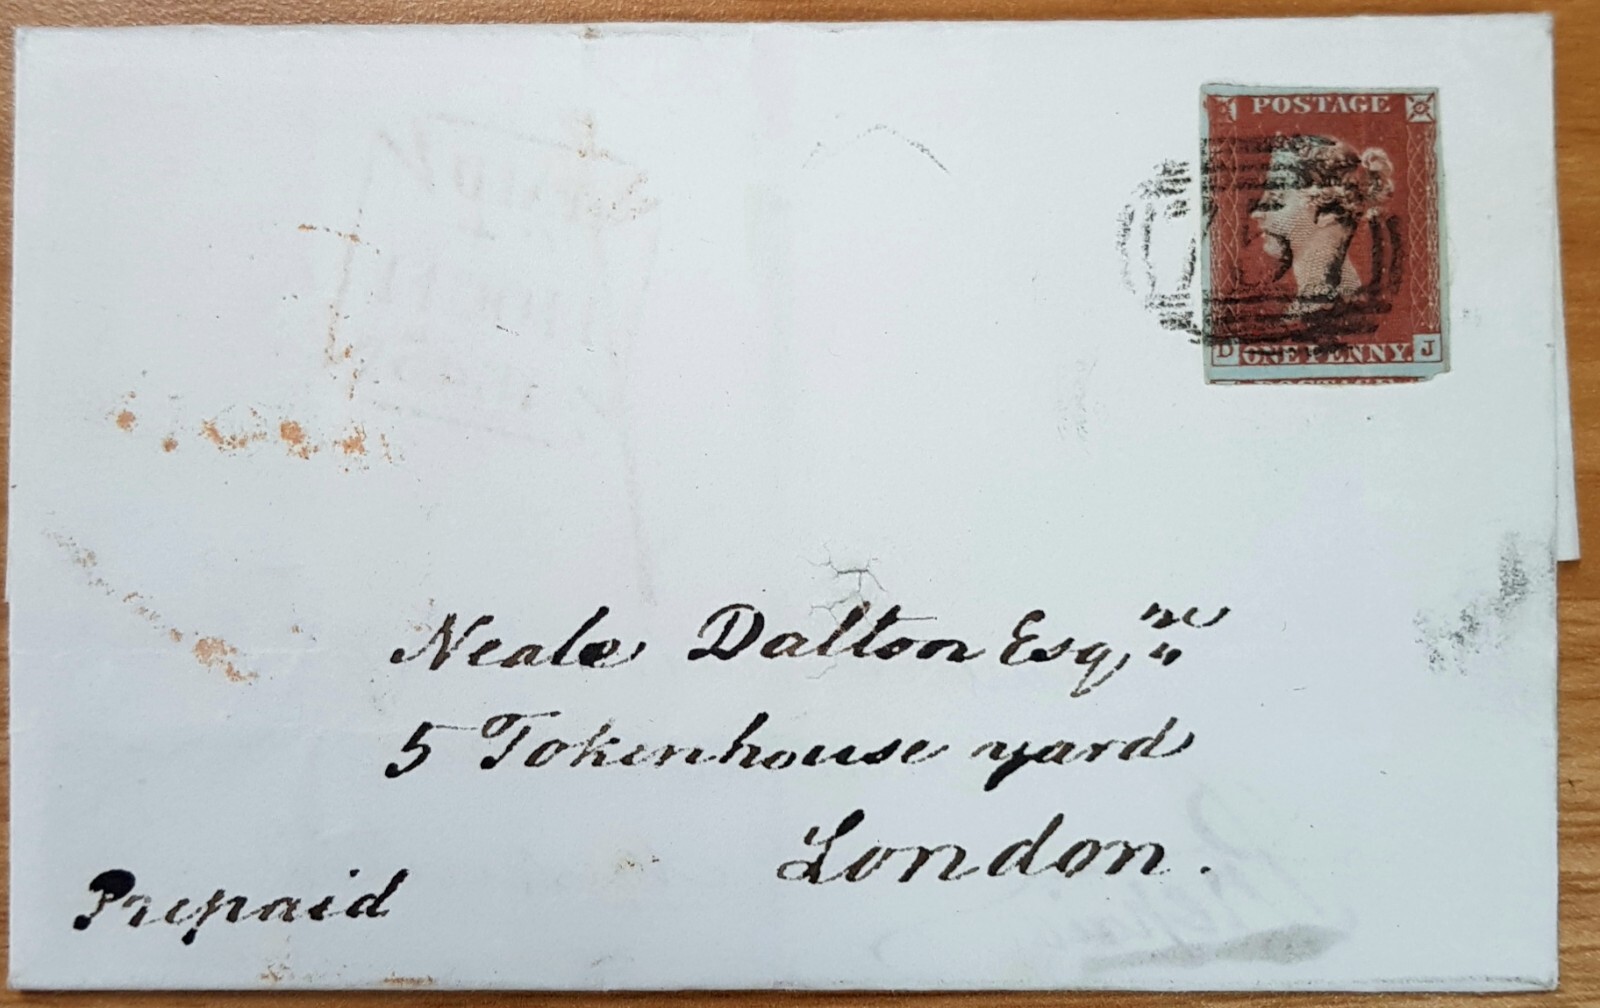 POSTAGE
D ONE PENNY. J
POSTAGE
Neale Dalton Esqre
5 Tokenhouse yard
London.
Prepaid